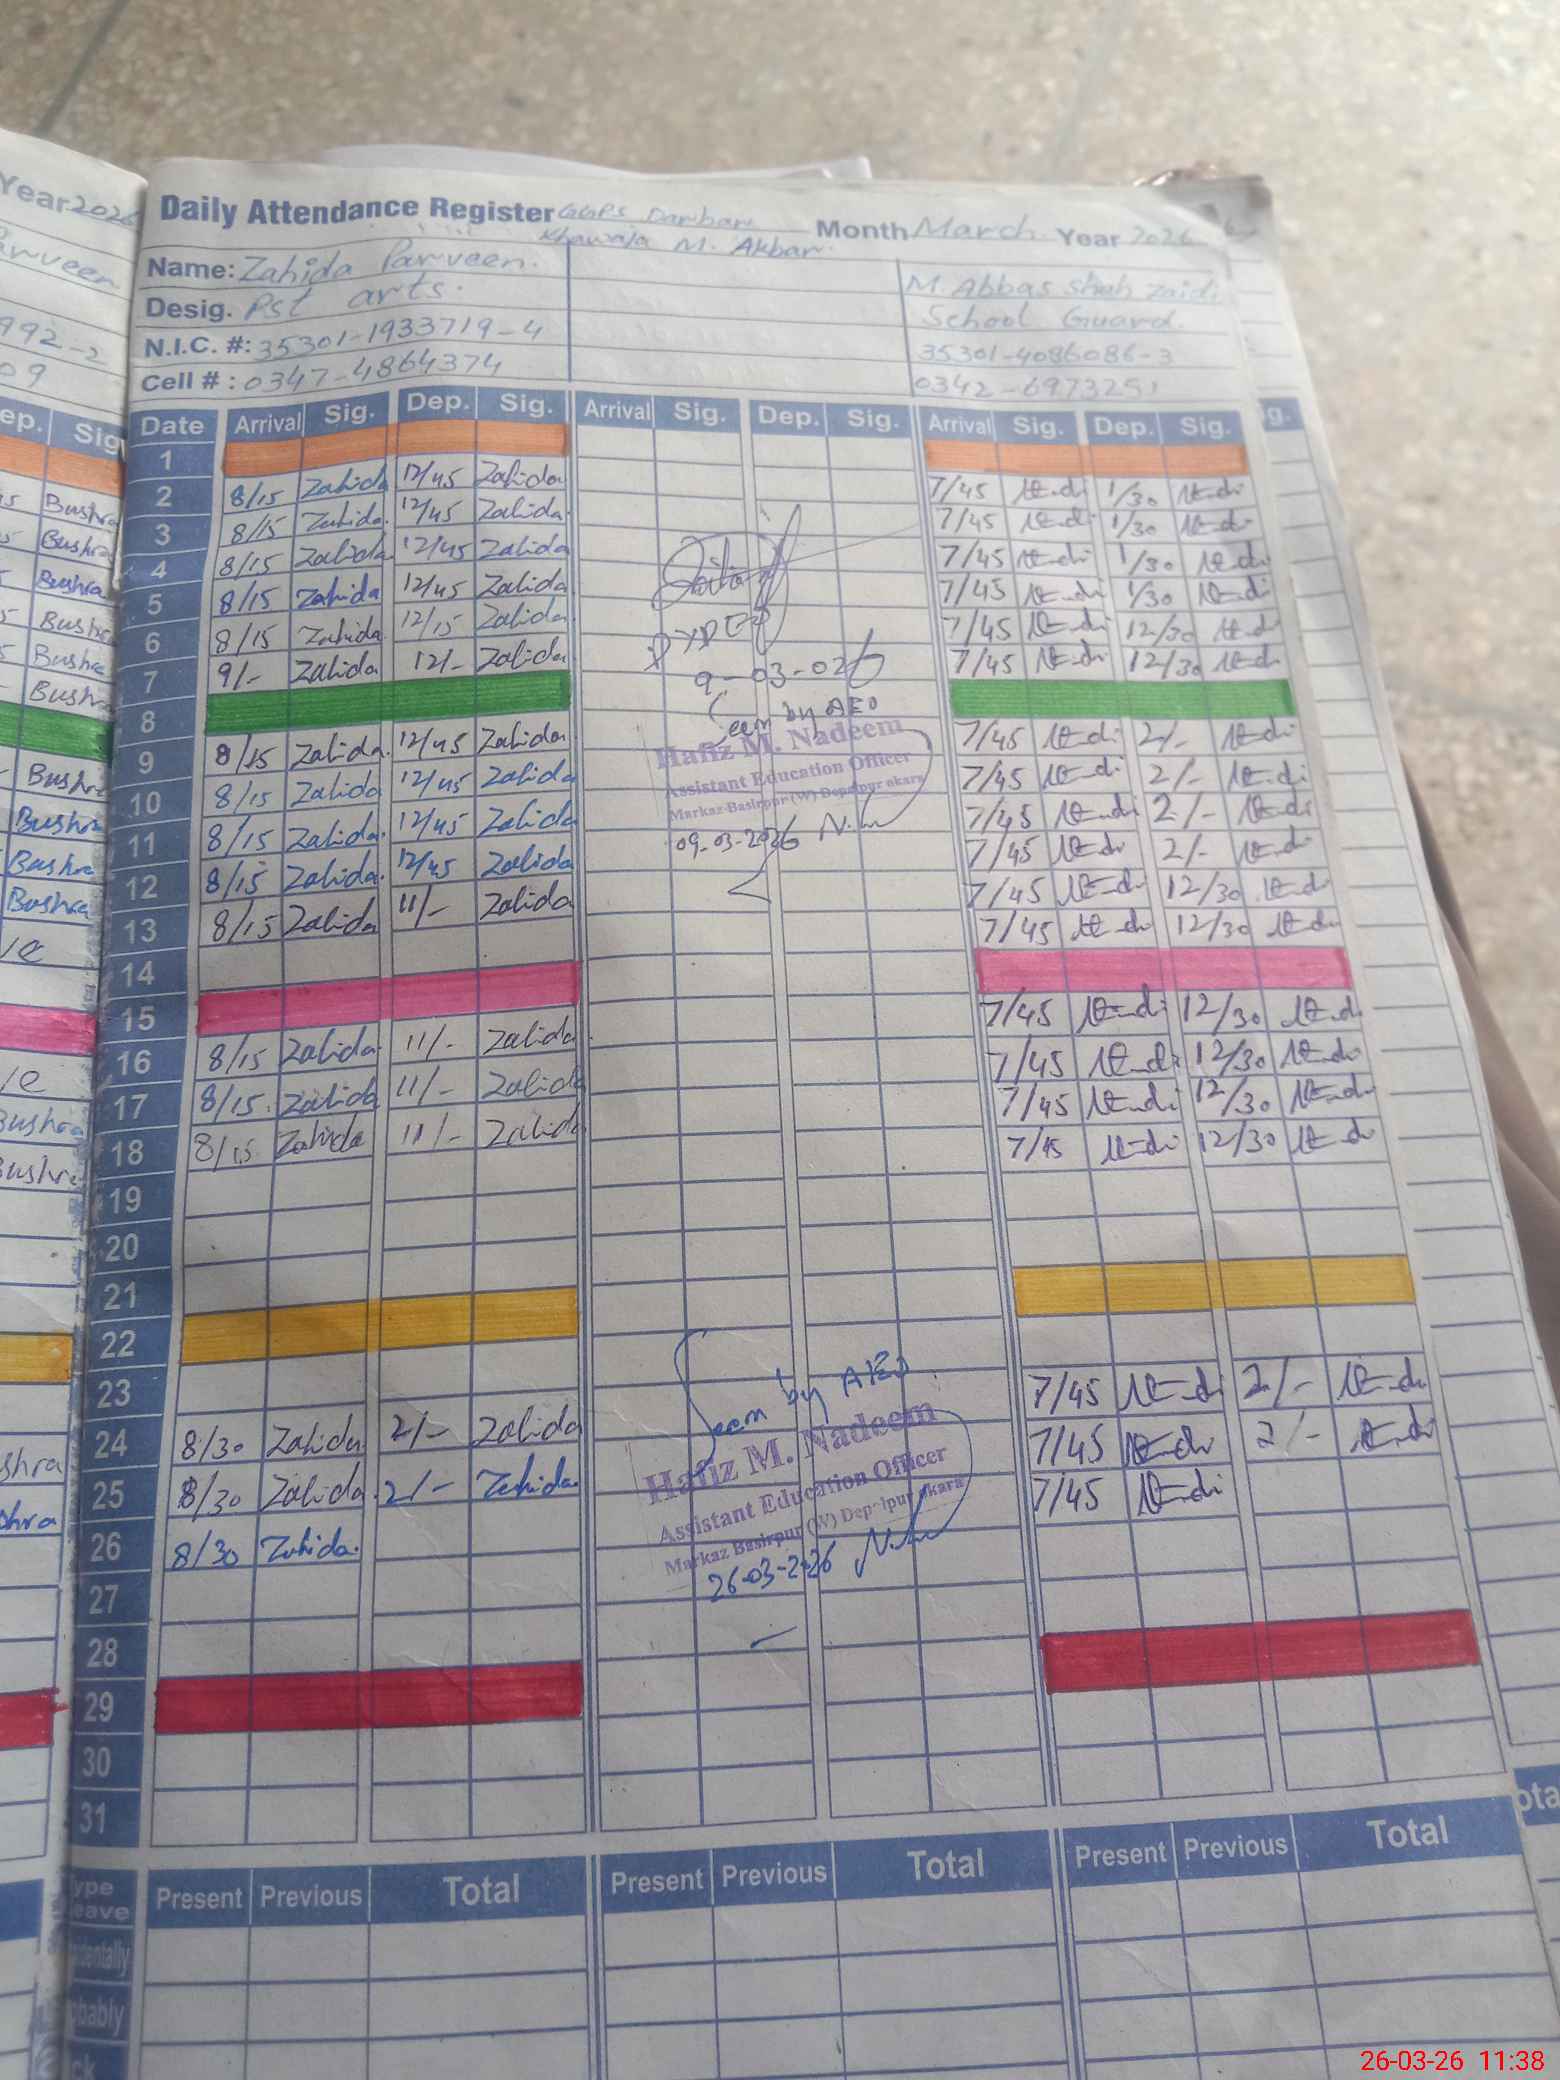 Year 2026
Daily Attendance Register GGPS Darbar Month March Year 2026
Khawaja M. Akbar.
Name: Zahida Parveen.
Desig. Pst arts.
N.I.C. #: 35301-1933719-4
Cell #: 0347-4864374
M. Abbas Shah Zaidi
School Guard.
35301-4086086-3
0342-6973251
Date Arrival Sig. Dep. Sig. Arrival Sig. Dep. Sig. Arrival Sig. Dep. Sig.
1
2 8/15 Zahida 12/45 Zahida 7/45 1/30
3 8/15 Zahida 12/45 Zahida 7/45 1/30
4 8/15 Zahida 12/45 Zahida 7/45 1/30
5 8/15 Zahida 12/45 Zahida 7/45 1/30
6 8/15 Zahida 12/15 Zahida 7/45 12/30
7 9/- Zahida 12/- Zahida 7/45 12/30
8
9 8/15 Zahida 12/45 Zahida 7/45 2/-
10 8/15 Zahida 12/45 Zahida 7/45 2/-
11 8/15 Zahida 12/45 Zahida 7/45 2/-
12 8/15 Zahida 12/45 Zahida 7/45 2/-
13 8/15 Zahida 11/- Zahida 7/45 12/30
14 7/45 12/30
15
16 8/15 Zahida 11/- Zahida 7/45 12/30
17 8/15 Zahida 11/- Zahida 7/45 12/30
18 8/15 Zahida 11/- Zahida 7/45 12/30
19 7/45 12/30
20
21
22
23
24 8/30 Zahida 2/- Zahida 7/45 2/-
25 8/30 Zahida 2/- Zahida 7/45 2/-
26 8/30 Zahida 7/45
27
28
29
30
31
9-03-026
Seen by AEO
Hafiz M. Nadeem
Assistant Education Officer
Markaz Basirpur (W) Depalpur okara
09-03-2026
Seen by AEO
Hafiz M. Nadeem
Assistant Education Officer
Markaz Basirpur (W) Depalpur okara
26-03-2026
Present Previous Total Present Previous Total Present Previous Total
26-03-26 11:38